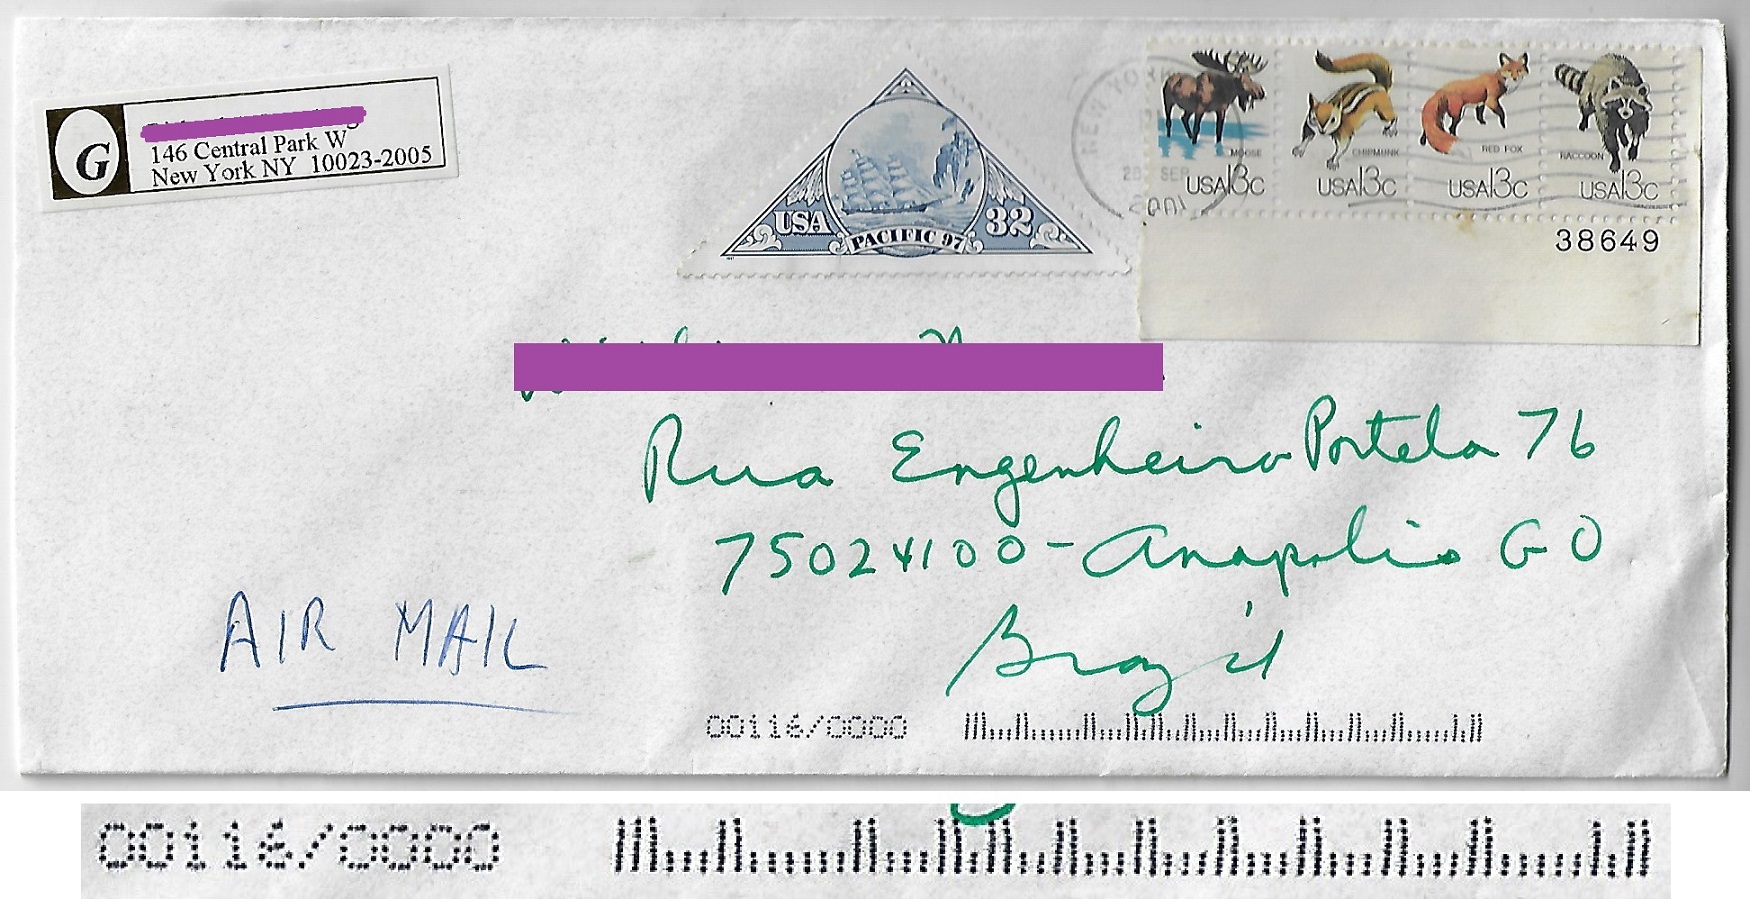 G
146 Central Park W
New York NY 10023-2005
USA
32
PACIFIC 97
1997
NEW YORK
28 SEP
2001
MOOSE
USA13c
CHIPMUNK
USA13c
RED FOX
USA13c
RACCOON
USA13c
38649
Rua Engenheiro Portela 76
75024100 - Anapolis GO
Brazil
AIR MAIL
00116/0000
00116/0000